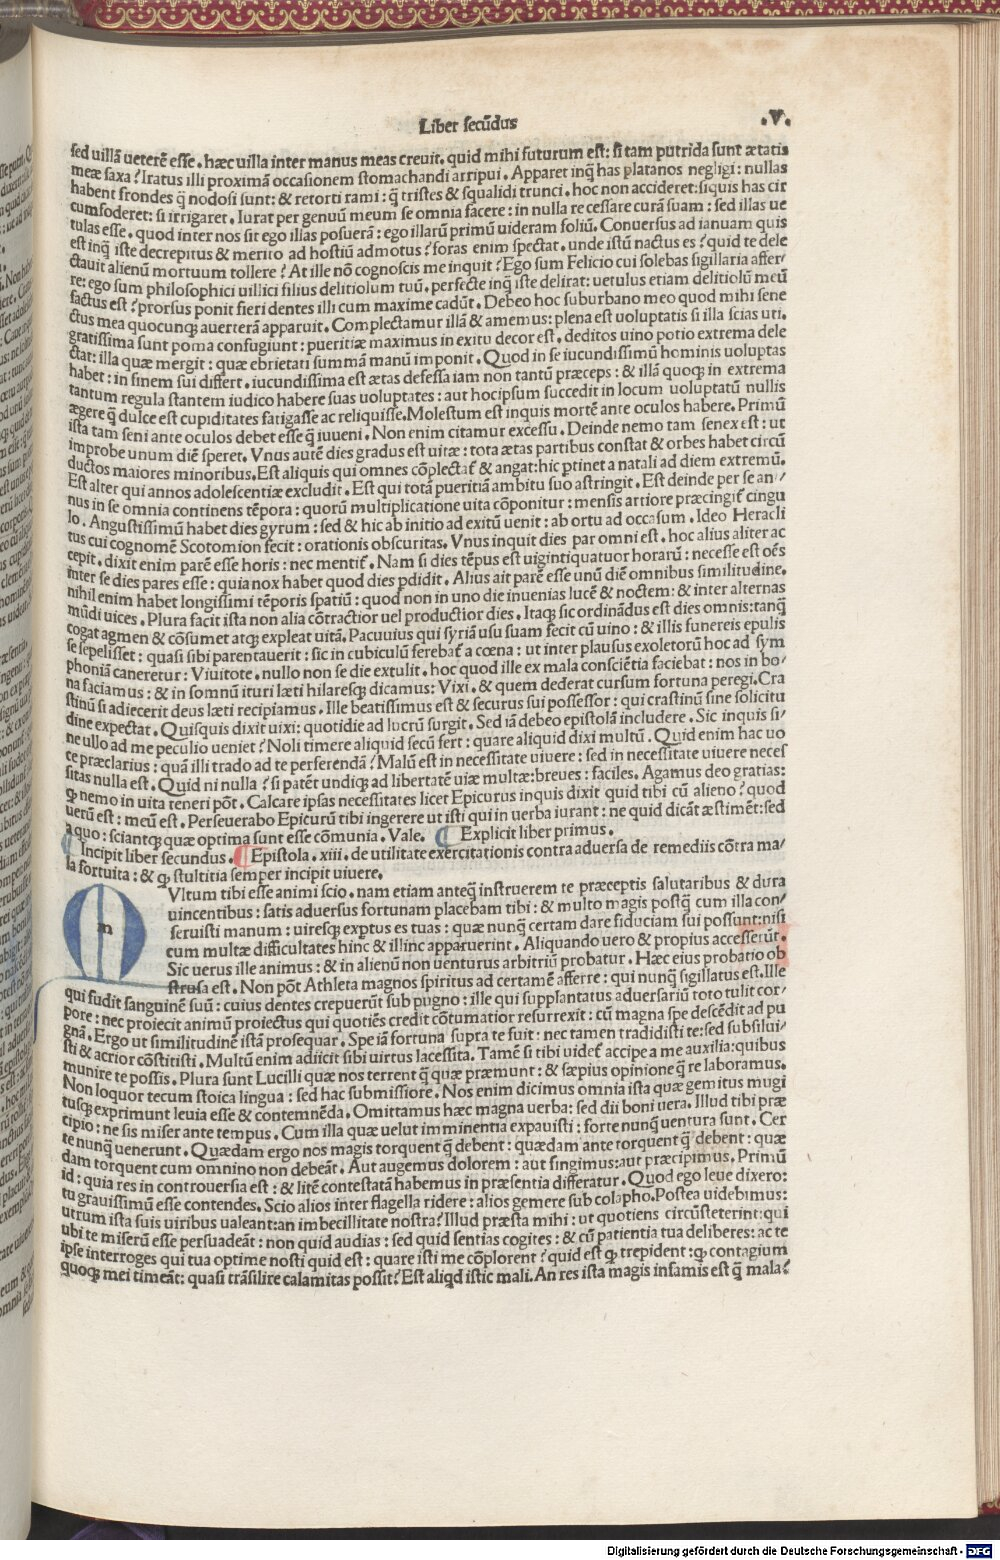 Liber secūdus .V.
sed uillā ueterē esse. hæc uilla inter manus meas creuit. quid mihi futurum est: si tam putrida sunt ætatis
meæ saxa? Iratus illi proximā occasionem stomachandi arripui. Apparet inq̄ has platanos negligi: nullas
habent frondes q̄ nodosi sunt: & retorti rami: q̄ tristes & squalidi trunci. hoc non accideret: siquis has cir
cumfoderet: si irrigaret. Iurat per genuū meum se omnia facere: in nulla re cessare curā suam: sed illas ue
tulas esse. quod inter nos sit ego illas posuerā: ego illarū primū uideram foliū. Conuersus ad ianuam quis
est inq̄ iste decrepitus & merito ad hostiū admotus? foras enim spectat. unde istū nactus es? quid te dele
ctauit alienū mortuum tollere? At ille nō cognoscis me inquit? Ego sum Felicio cui solebas sigillaria affer/
re: ego sum philosophici uillici filius delitiolum tuū. perfecte inq̄ iste delirat: uetulus etiam delitiolū meū
factus est? prorsus ponit fieri dentes illi cum maxime cadūt. Debeo hoc suburbano meo quod mihi sene
ctus mea quocunq; auerterā apparuit. Complectamur illā & amemus: plena est uoluptatis si illa scias uti.
gratissima sunt poma confugiunt: pueritiæ maximus in exitu decor est. deditos uino potio extrema dele
ctat: illa quæ mergit: quæ ebrietati summā manū imponit. Quod in se iucundissimū hominis uoluptas
habet: in finem sui differt. iucundissima est ætas defessa iam non tantū præceps: & illā quoq; in extrema
tantum regula stantem iudico habere suas uoluptates: aut hocipsum succedit in locum uoluptatū nullis
ægere q̄ dulce est cupiditates fatigasse ac reliquisse. Molestum est inquis mortē ante oculos habere. Primū
ista tam seni ante oculos debet esse q̄ iuueni. Non enim citamur excessu. Deinde nemo tam senex est: ut
improbe unum diē speret. Vnus autē dies gradus est uitæ: tota ætas partibus constat & orbes habet circū
ductos maiores minoribus. Est aliquis qui omnes cōplectat́ & angat: hic ptinet a natali ad diem extremū.
Est alter qui annos adolescentiæ excludit. Est qui totā pueritiā ambitu suo astringit. Est deinde per se an/
nus in se omnia continens tēpora: quorū multiplicatione uita cōponitur: mensis artiore præcingit́ cingu
lo. Angustissimū habet dies gyrum: sed & hic ab initio ad exitū uenit: ab ortu ad occasum. Ideo Heracli
tus cui cognomē Scotomion fecit: orationis obscuritas. Vnus inquit dies par omni est. hoc alius aliter ac
cepit. dixit enim parē esse horis: nec mentit́. Nam si dies tēpus est uigintiquatuor horarū: necesse est oēs
inter se dies pares esse: quia nox habet quod dies pdidit. Alius ait parē esse unū diē omnibus similitudine.
nihil enim habet longissimi tēporis spatiū: quod non in uno die inuenias lucē & noctem: & inter alternas
mūdi uices. Plura facit ista non alia cōtractior uel productior dies. Itaq; sic ordinādus est dies omnis: tanq̄
cogat agmen & cōsumet atq; expleat uitā. Pacuuius qui syriā usu suam fecit cū uino: & illis funereis epulis
se sepelisset: quasi sibi parentauerit: sic in cubiculū ferebat́ a cœna: ut inter plausus exoletorū hoc ad sym
phoniā caneretur: Viuitote. nullo non se die extulit. hoc quod ille ex mala consciētia faciebat: nos in bo/
na faciamus: & in somnū ituri læti hilaresq; dicamus: Vixi. & quem dederat cursum fortuna peregi. Cra
stinū si adiecerit deus læti recipiamus. Ille beatissimus est & securus sui possessor: qui crastinū sine solicitu
dine expectat. Quisquis dixit uixi: quotidie ad lucrū surgit. Sed iā debeo epistolā includere. Sic inquis si/
ne ullo ad me peculio ueniet? Noli timere aliquid secū fert: quare aliquid dixi multū. Quid enim hac uo
ce præclarius: quā illi trado ad te perferendā? Malū est in necessitate uiuere: sed in necessitate uiuere neces
sitas nulla est. Quid ni nulla? si patēt undiq; ad libertatē uiæ multæ: breues: faciles. Agamus deo gratias:
q; nemo in uita teneri pōt. Calcare ipsas necessitates licet Epicurus inquis dixit quid tibi cū alieno? quod
uerū est: meū est. Perseuerabo Epicurū tibi ingerere ut isti qui in uerba iurant: ne quid dicāt æstimēt: sed
a quo: sciantq; quæ optima sunt esse cōmunia. Vale. Explicit liber primus.
Incipit liber secundus. Epistola. xiii. de utilitate exercitationis contra aduersa de remediis cōtra ma/
la fortuita: & q; stultitia semper incipit uiuere.
m Vltum tibi esse animi scio. nam etiam anteq̄ instruerem te præceptis salutaribus & dura
uincentibus: satis aduersus fortunam placebam tibi: & multo magis postq̄ cum illa con/
seruisti manum: uiresq; exptus es tuas: quæ nunq̄ certam dare fiduciam sui possunt: nisi
cum multæ difficultates hinc & illinc apparuerint. Aliquando uero & propius accesserūt.
Sic uerus ille animus: & in alienū non uenturus arbitriū probatur. Hæc eius probatio ob
strusa est. Non pōt Athleta magnos spiritus ad certamē afferre: qui nunq̄ sigillatus est. Ille
qui fudit sanguinē suū: cuius dentes crepuerūt sub pugno: ille qui supplantatus aduersariū toto tulit cor/
pore: nec proiecit animū proiectus qui quotiēs credit cōtumatior resurrexit: cū magna spe descēdit ad pu
gnā. Ergo ut similitudinē istā prosequar. Spe iā fortuna supra te fuit: nec tamen tradidisti te: sed subsilui/
sti & acrior cōstitisti. Multū enim adiicit sibi uirtus lacessita. Tamē si tibi uidet́ accipe a me auxilia: quibus
munire te possis. Plura sunt Lucilli quæ nos terrent q̄ quæ præmunt: & sæpius opinione q̄ re laboramus.
Non loquor tecum stoica lingua: sed hac submissiore. Nos enim dicimus omnia ista quæ gemitus mugi
tusq; exprimunt leuia esse & contemnēda. Omittamus hæc magna uerba: sed dii boni uera. Illud tibi præ
cipio: ne sis miser ante tempus. Cum illa quæ uelut imminentia expauisti: forte nunq̄ uentura sunt. Cer
te nunq̄ uenerunt. Quædam ergo nos magis torquent q̄ debent: quædam ante torquent q̄ debent: quæ
dam torquent cum omnino non debeāt. Aut augemus dolorem: aut fingimus: aut præcipimus. Primū
id: quia res in controuersia est: & litē contestatā habemus in præsentia differatur. Quod ego leue dixero:
tu grauissimū esse contendes. Scio alios inter flagella ridere: alios gemere sub colapho. Postea uidebimus:
utrum ista suis uiribus ualeant: an imbecillitate nostra? Illud præsta mihi: ut quotiens circūsteterint: qui
ubi te miserū esse persuadeāt: non quid audias: sed quid sentias cogites: & cū patientia tua deliberes: ac te
ipse interroges qui tua optime nosti quid est: quare isti me cōplorent? quid est q; trepident: q; contagium
quoq; mei timeāt: quasi trāsilire calamitas possit? Est aliqd istic mali. An res ista magis infamis est q̄ mala?
Digitalisierung gefördert durch die Deutsche Forschungsgemeinschaft - DFG